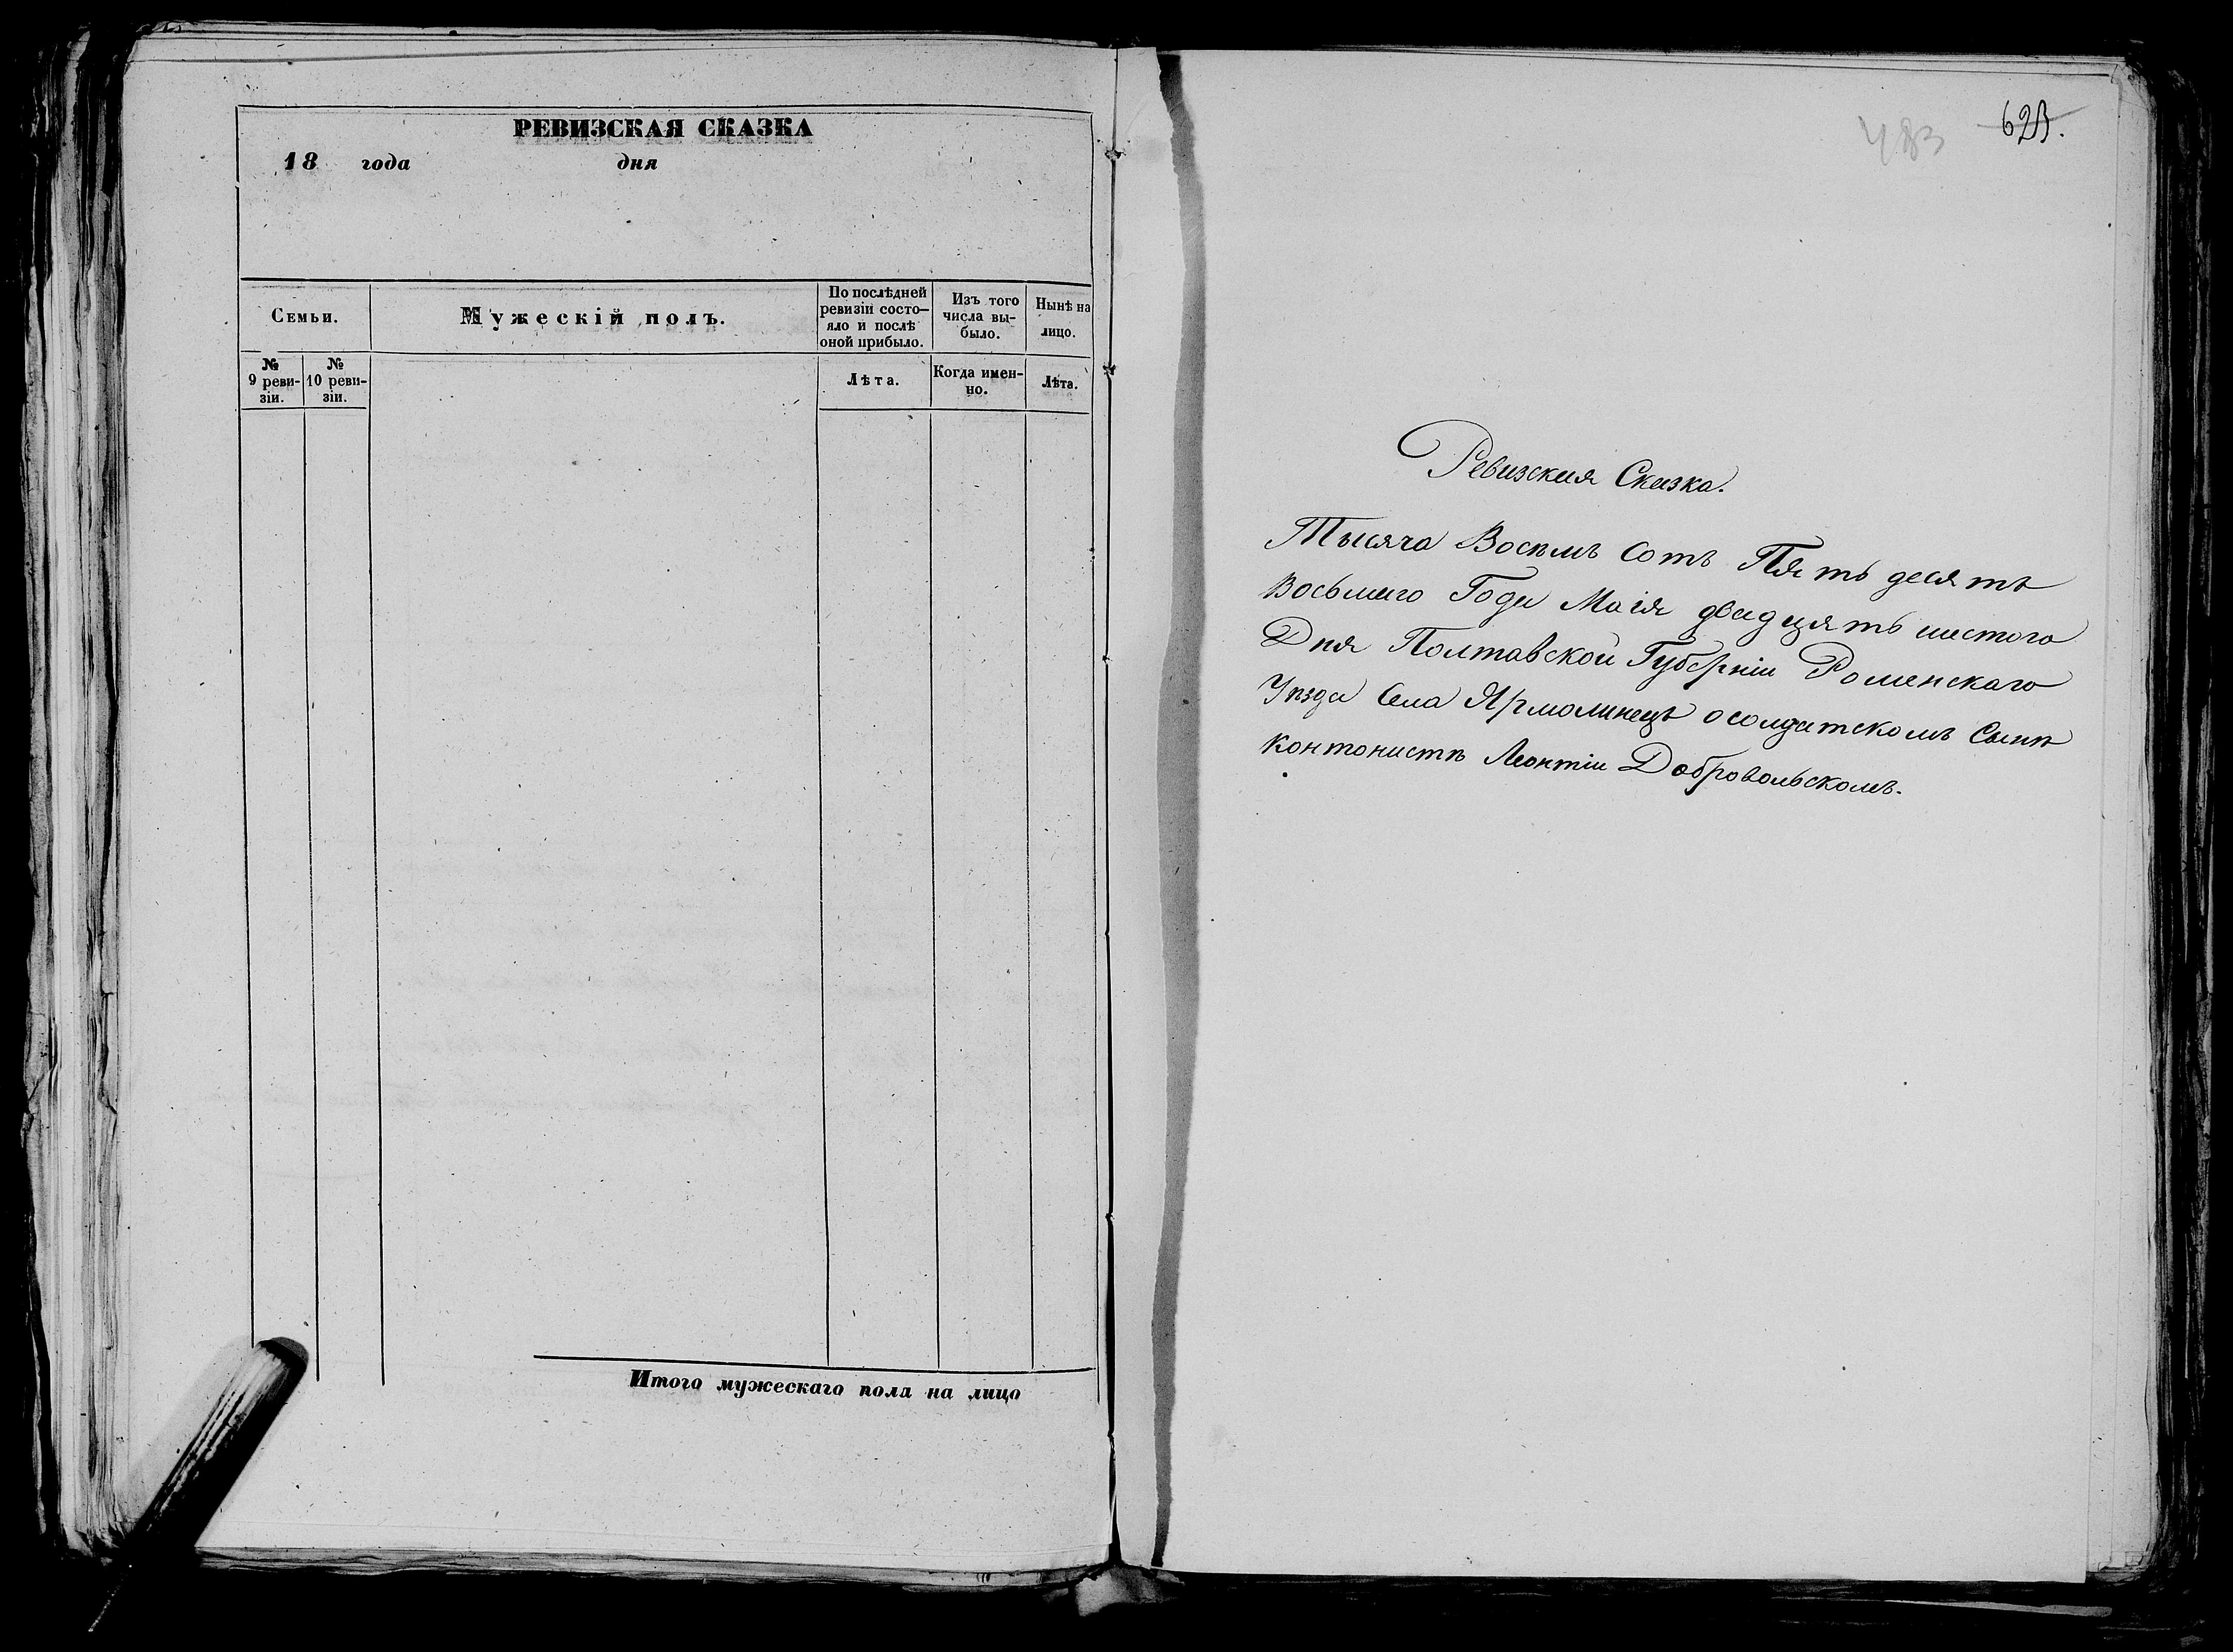 РЕВИЗСКАЯ СКАЗКА
18 года дня
Семьи.
Мужескій полъ.
По послѣдней ревизіи состо-
яло и послѣ оной прибыло.
Изъ того числа вы-
было.
Нынѣ на лицо.
№ 9 реви-
зіи.
№ 10 реви-
зіи.
Лѣта.
Когда имен-
но.
Лѣта.
Итого мужескаго пола на лицо
483
Ревизская Сказка.
Тысяча Восемь сотъ Пять десятъ
Восьмаго Года Маія двадцять шестого
Дня Полтавской Губерніи Роменскаго
Уѣзда Села Ярмолинецъ о солдатскомъ Сынѣ
контонистѣ Леонтіи Добровольскомъ.